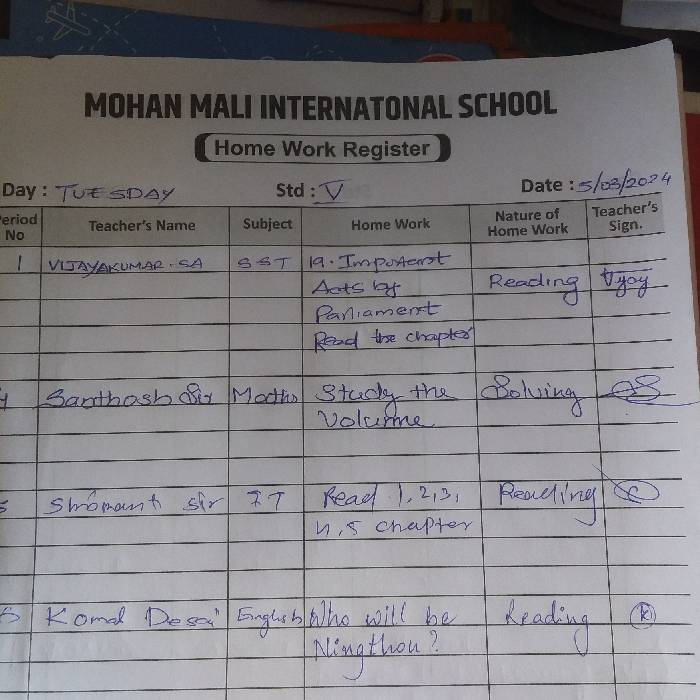 MOHAN MALI INTERNATONAL SCHOOL
Home Work Register
Day : TUESDAY Std : V Date : 5/03/2024
Period No Teacher's Name Subject Home Work Nature of Home Work Teacher's Sign.
1 VIJAYAKUMAR. SA SST 19. Important
Acts by Reading Vijay
Parliament
Read the chapter
Santhosh Sir Maths Study the Solving
Volume
sir IT Read 1, 2, 3, Reading
4, 5 chapter
Komal Desai English Who will be Reading K
Ningthou?